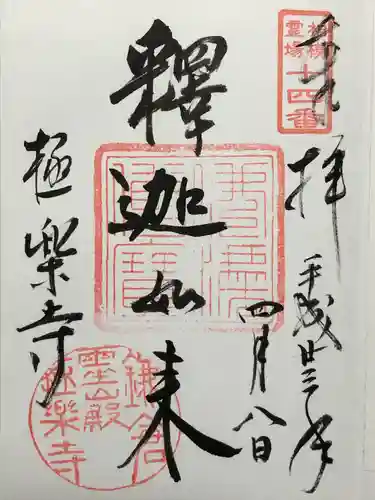 奉拝
平成廿三年
四月八日
釋迦如来
極楽寺
霊場
十四番
鎌倉
霊山殿
極樂寺